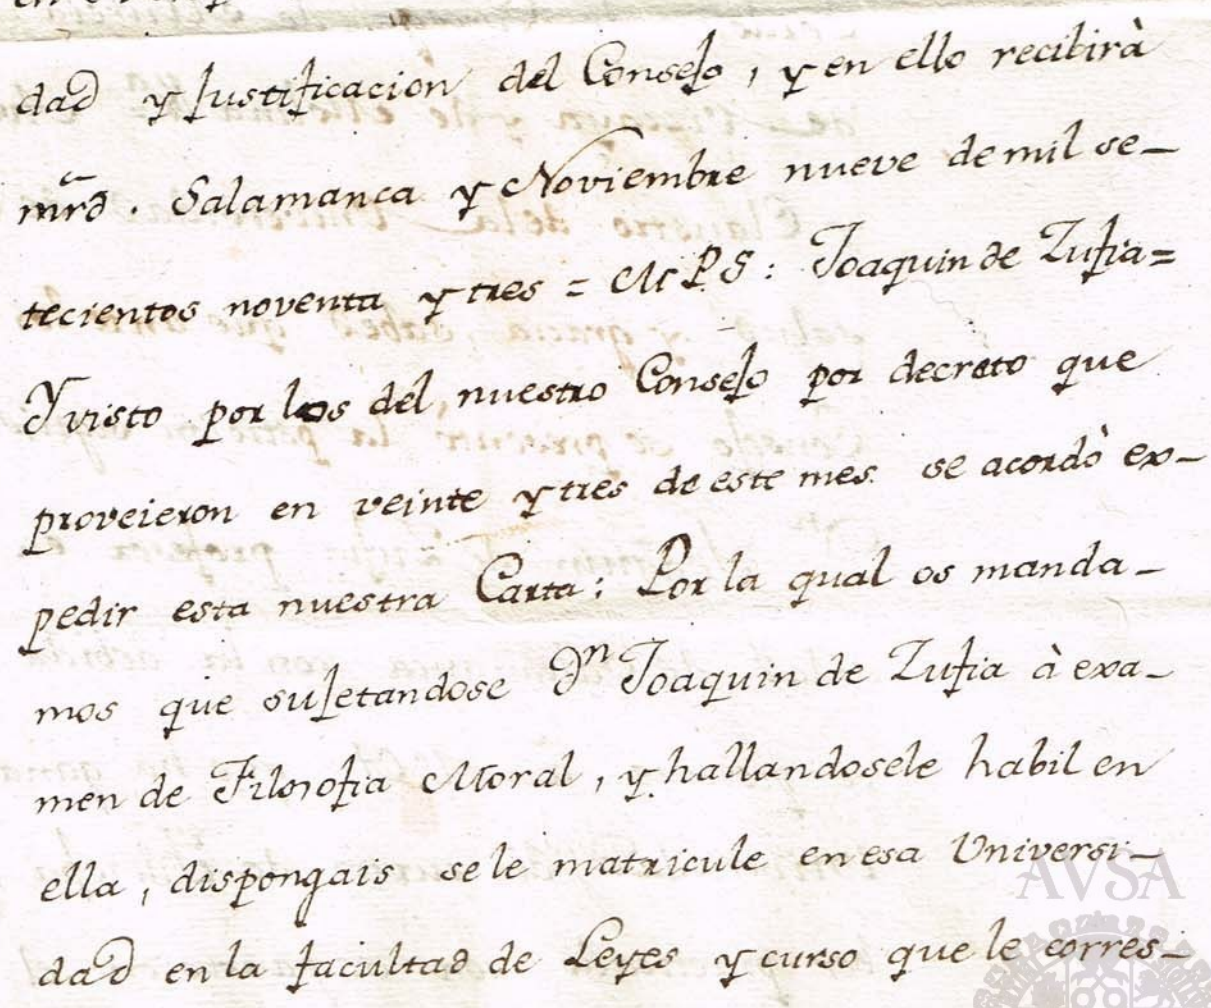 dad y Justificacion del Consejo, y en ello recibirà
mrd. Salamanca y Noviembre nueve de mil se-
tecientos noventa y tres = M.P.S: Joaquin de Zufia=
Y visto por los del nuestro Consejo por decreto que
proveieron en veinte y tres de este mes. se acordò ex-
pedir esta nuestra Carta: Por la qual os manda-
mos que sujetandose Dn Joaquin de Zufia à exa-
men de Filosofia Moral, y hallandosele habil en
ella, dispongais se le matricule en esa Universi-
dad en la facultad de Leyes y curso que le corres-
AVSA